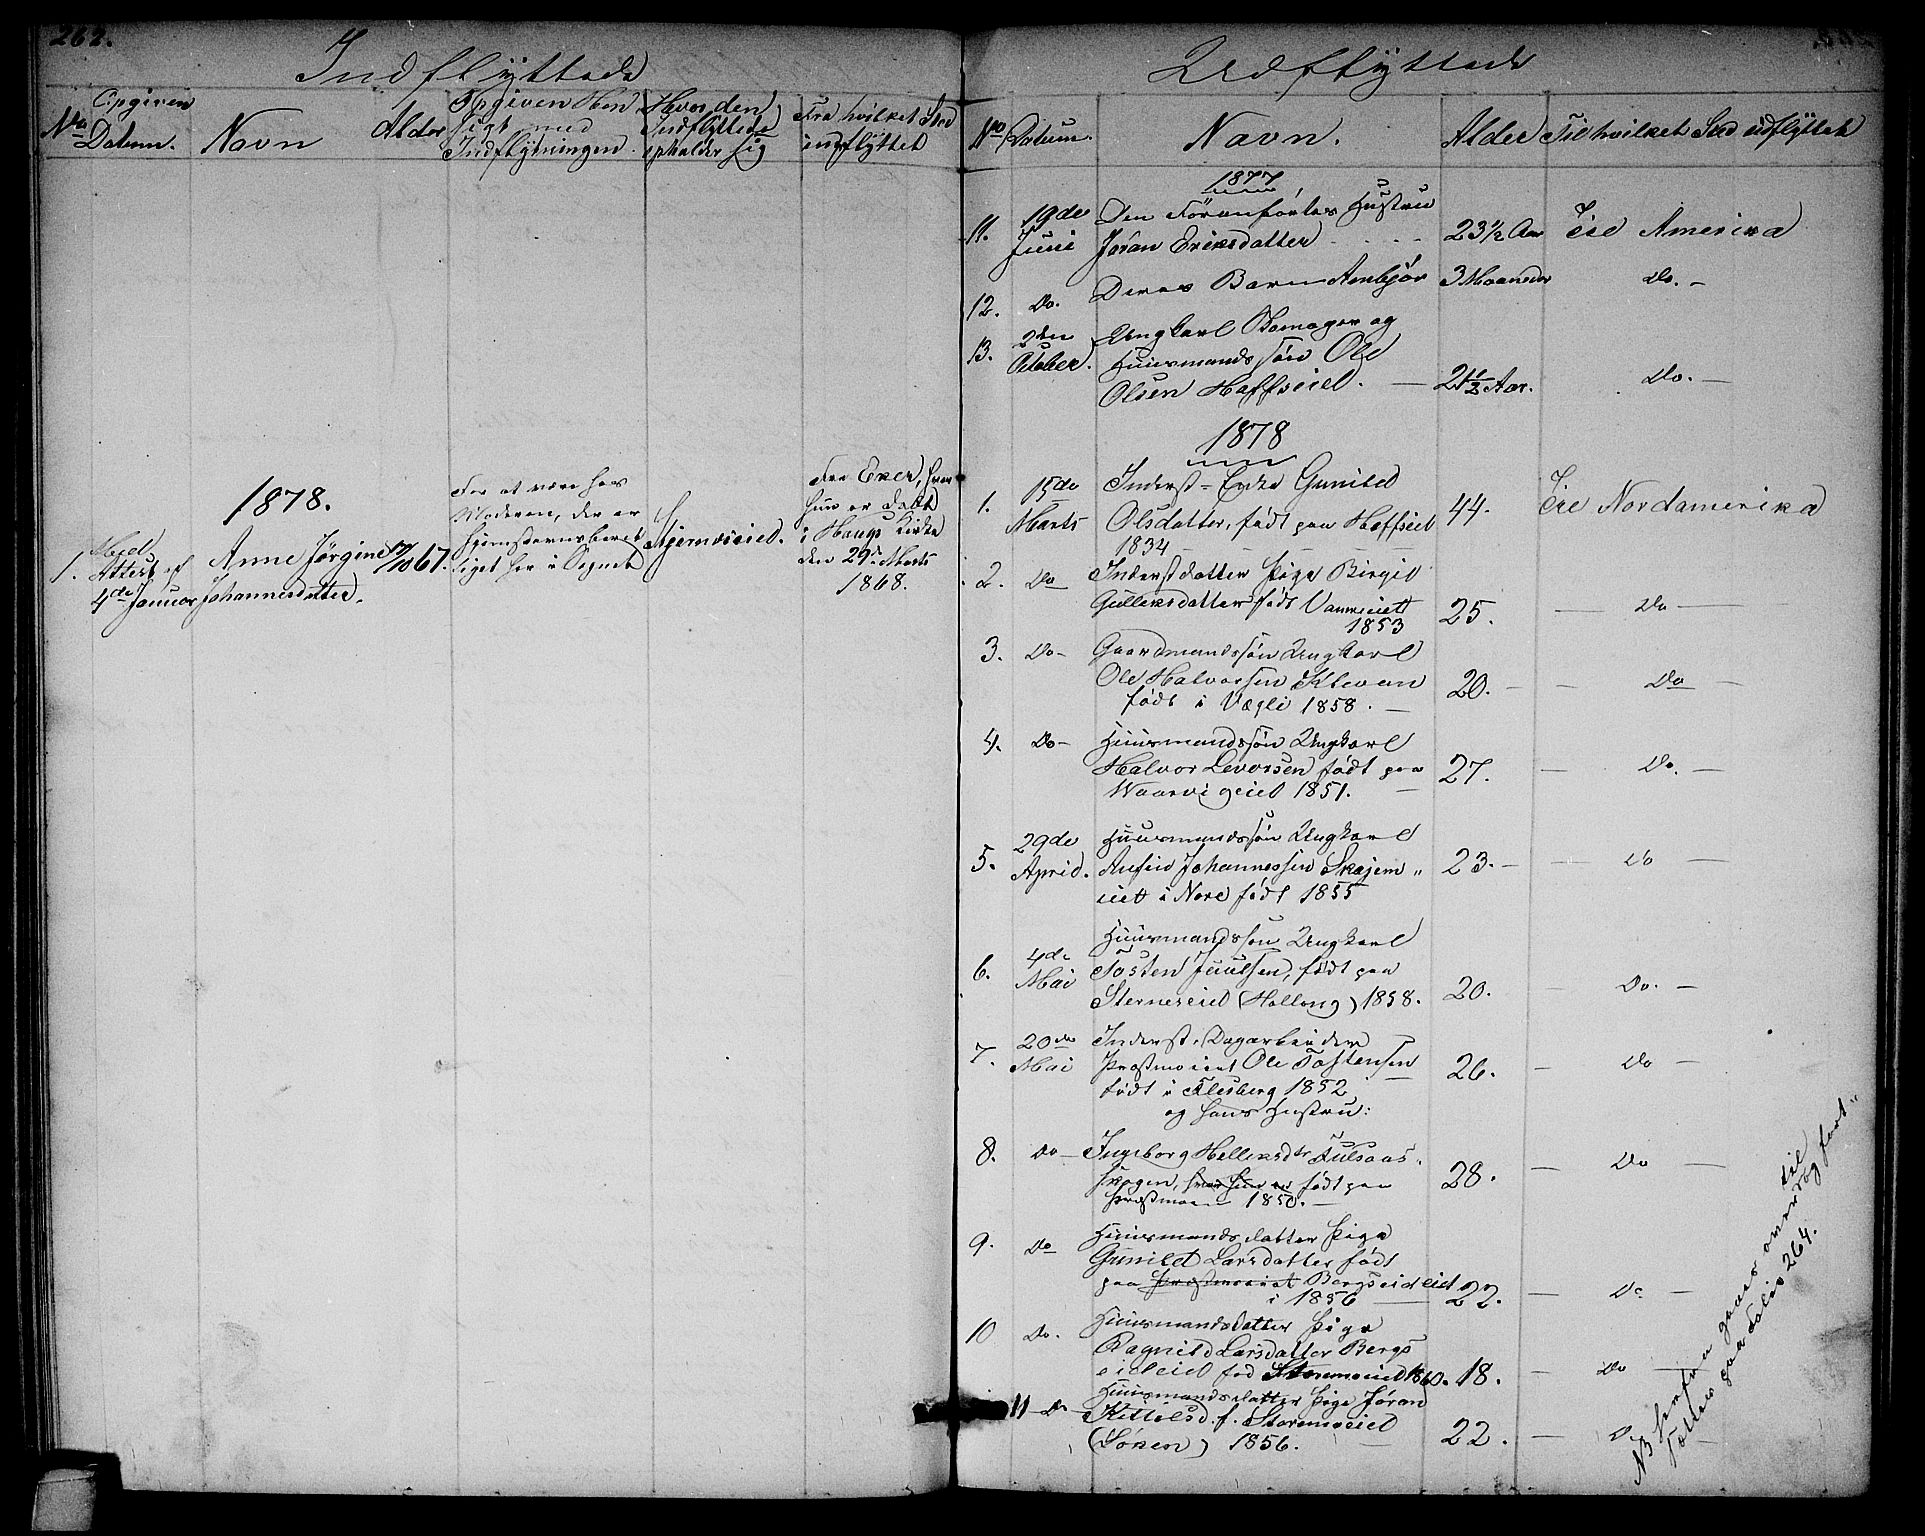 262.
Indflyttede
No
Opgiven
Datum.
Navn
Alder
Opgiven Hen
sigt med
Indflytningen.
Hvor den
Indflyttede
opholder sig
Fra hvilket Sted
indflyttet
1878.
1.
Med
Attest af
4de Januar
Anne Jørgine
Johannesdatter.
67.
For at være hos
Moderen, der er
hjemstavnsberet
tiget her i Sognet
Fra Eker, hvor
hun er døbt
i Haugs Kirke
den 29de Marts
1868.
Udflyttede
No
Datum.
Navn.
Alder
Til hvilket Sted udflyttet
1877
11.
19de
Juni
Den Foranførtes Hustru
Jøran Eriksdatter
23 1/2 Aar
Til Amerika
12.
Do.
Deres Barn Ambjør
3 Maaneder
Do. -
13.
2den
October.
Ungkarl Skomager og
Huusmandssøn Ole
Olsen Hoffseiet. -
21 1/2 Aar.
Do. -
1878
1.
15de
Marts
Inderst-Enke Gunild
Olsdatter, født paa Hoffseiet
1834
44.
Til Nordamerika
2.
Do
Inderstdatter Pige Birgit
Gulleksdatter født
1853
25.
- Do -
3.
Do -
Gaardmandssøn Ungkarl
Ole Halvorsen Kleven
født i Vægli 1858. -
20. -
- Do -
4.
Do -
Huusmandssøn Ungkarl
Halvor Levorsen født paa
Waarvigeiet 1851. -
27.
- Do. -
5.
29de
April.
Huusmandssøn Ungkarl
Anfin Johannessen Skjem"
eiet i Nore født 1855
23. -
- Do -
6.
4de
Mai
Huusmandssøn Ungkarl
Tosten Juulsen, født paa
Sterneseiet (Hallang) 1858.
20.
- Do. -
7.
20de
Mai
Inderst, Dagarbeider
Præstmoeiet Ole Tostensen
født i Flesberg 1852
og hans Hustru:
26.
- Do -
8.
Do -
Ingeborg Helleksdtr Fulsaas
skogen, hvor hun er født paa
Præstmoen 1850. -
28.
- Do -
9.
Do
Huusmandsdatter Pige
Gunild Larsdatter født
paa Præstmoeiet Bergseideiet
i 1856
22.
- Do -
10
Do.
Huusmandsdatter Pige
Ragnild Larsdatter Bergs
eideiet fød Storemoeiet 1860.
18.
- Do -
11
Do
Huusmandsdatter Pige Jøran
Kittilsd. f. Storemoeiet
(Søren) 1856. -
22.
- D. -
NB Herfra gaaes over til
og fort"
sættes paa Folio 264.